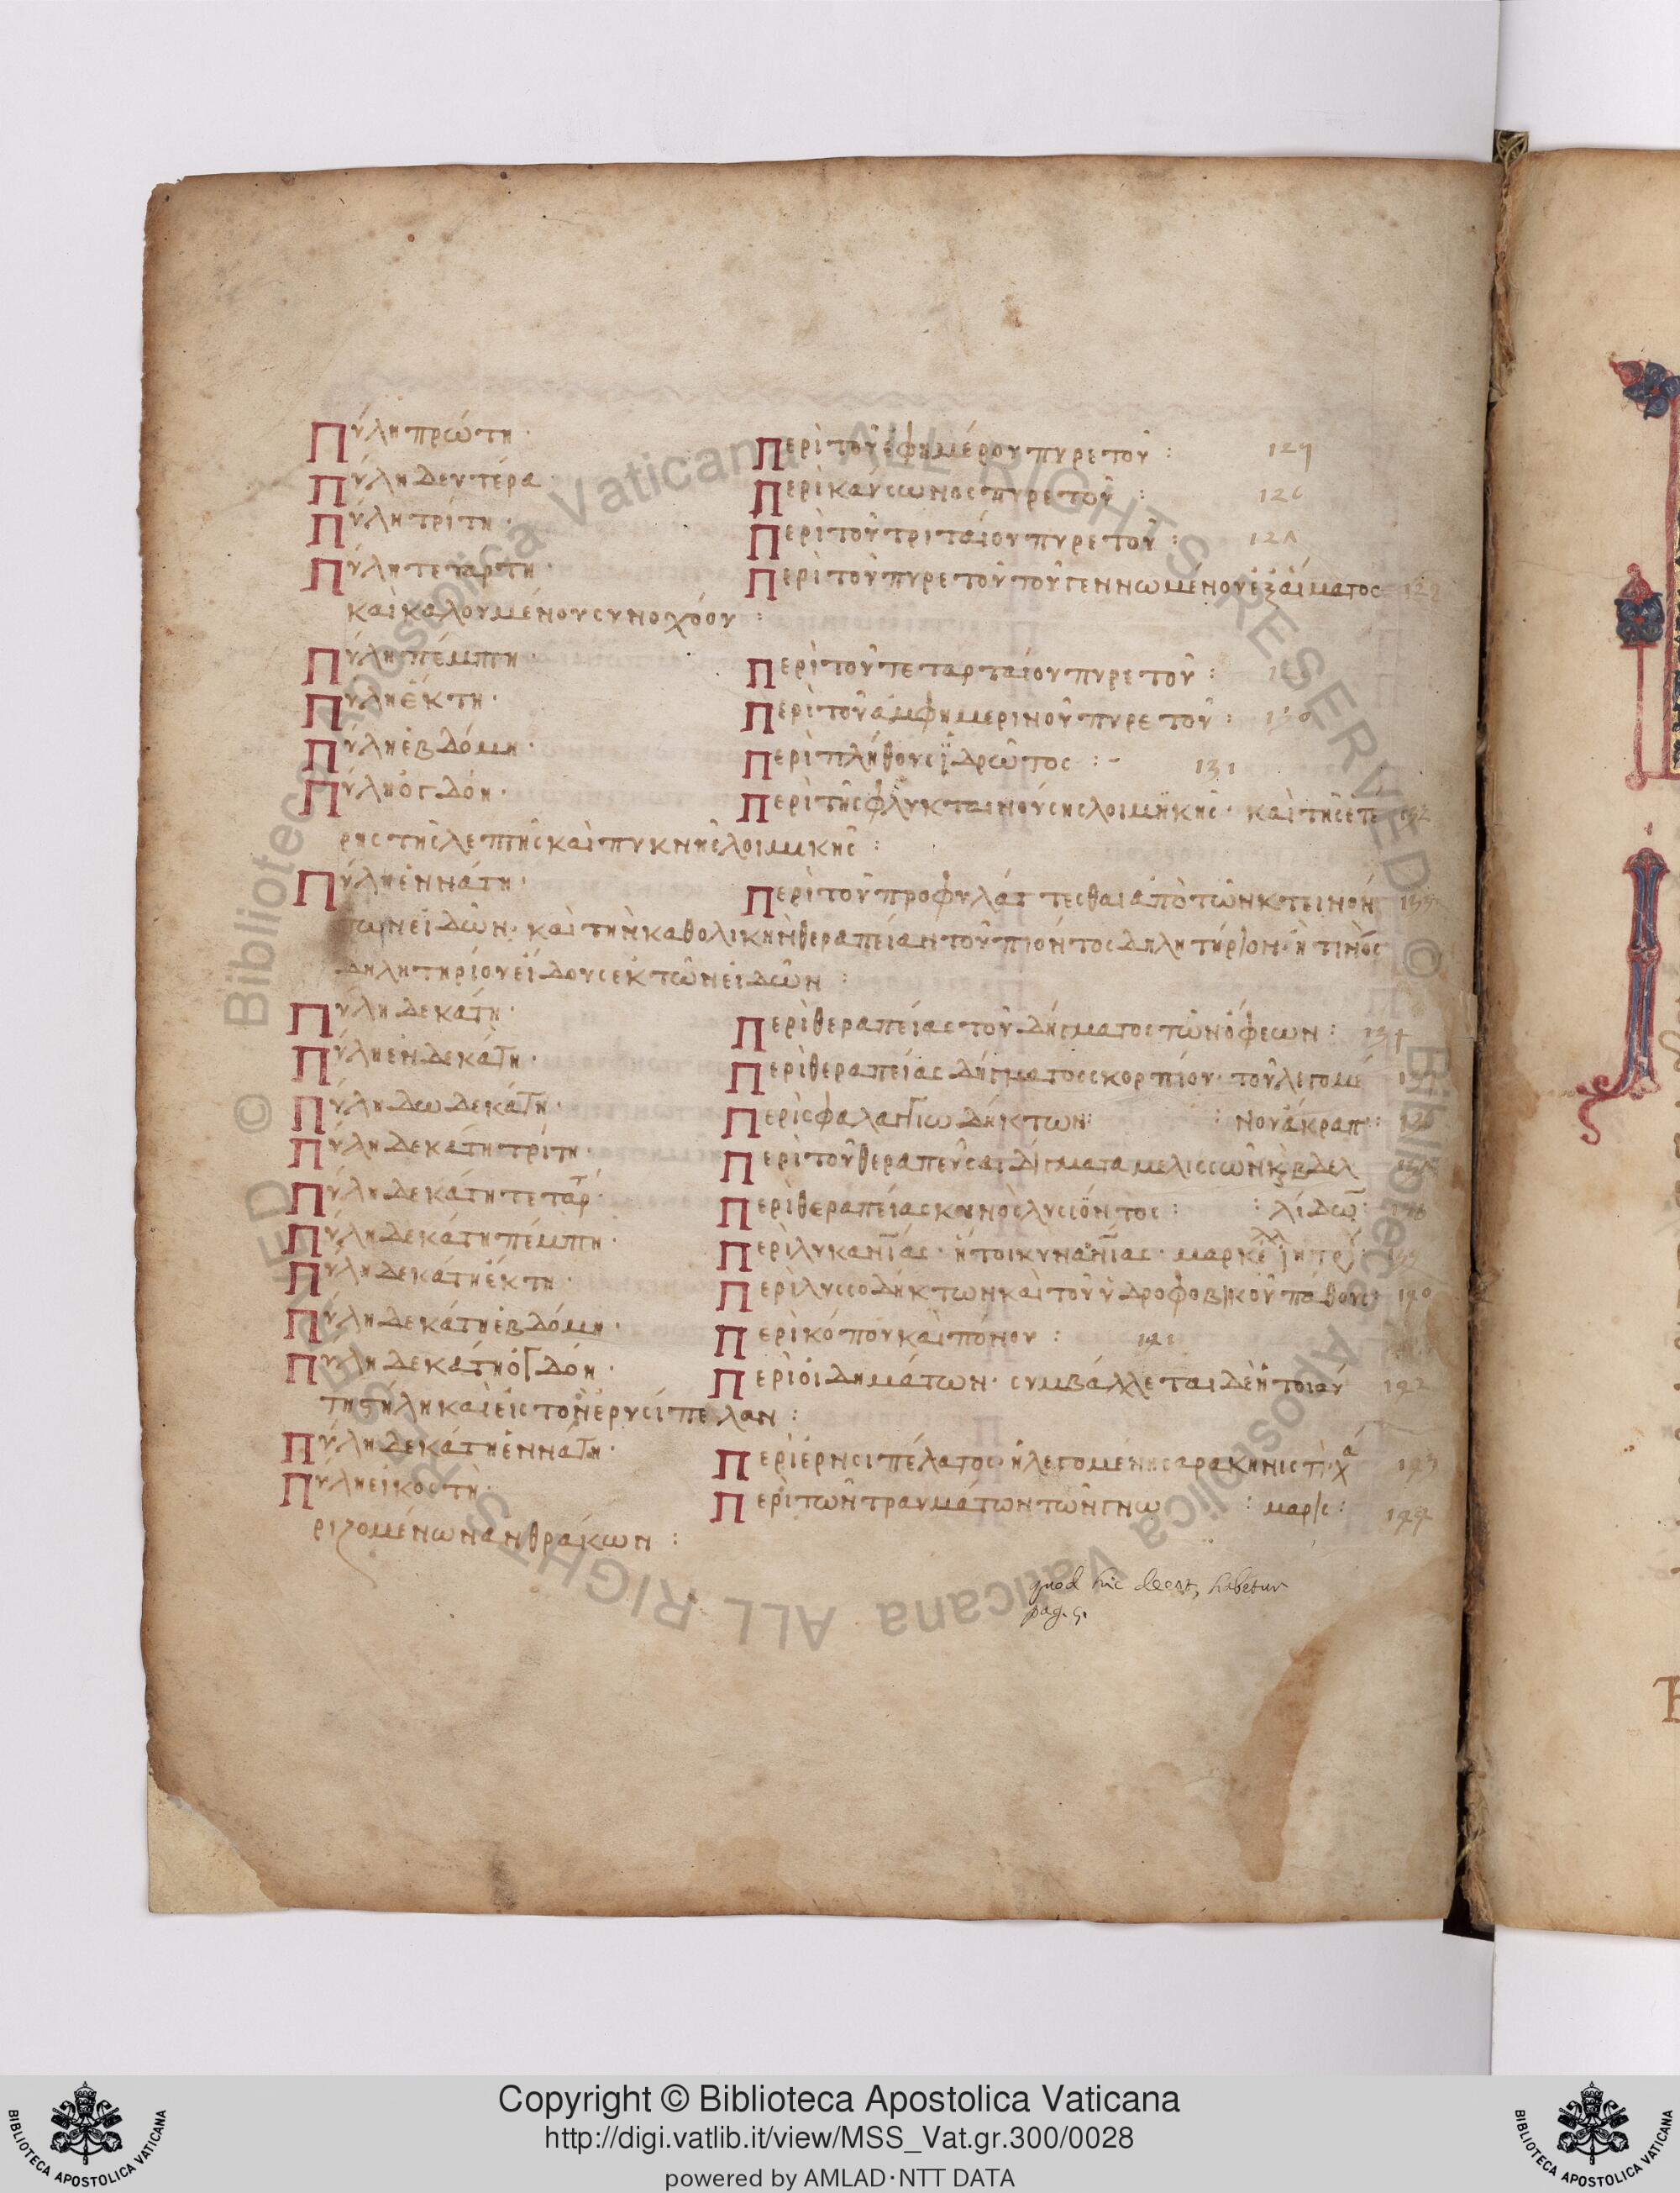 Πύλη πρώτη· Περὶ τοῦ ἐφημέρου πυρετοῦ :
Πύλη δευτέρα· Περὶ καύσωνος πυρετοῦ : 126
Πύλη τρίτη· Περὶ τοῦ τριταίου πυρετοῦ :
Πύλη τετάρτη· Περὶ τοῦ πυρετοῦ τοῦ γεννωμένου ἐξ αἵματος
καὶ καλουμένου συνοχόου :
Πύλη πέμπτη· Περὶ τοῦ τεταρταίου πυρετοῦ :
Πύλη ἕκτη· Περὶ τοῦ ἀμφημερινοῦ πυρετοῦ : 130
Πύλη ἑβδόμη· Περὶ πλήθους ἱδρῶτος :- 131
Πύλη ὀγδόη· Περὶ τῆς φλυκταινούσης λοιμηκῆς· καὶ τῆς ετέ 132
ρης τῆς λεπτῆς καὶ πυκνῆς λοιμικῆς :
Πύλη ἐννάτη· Περὶ τοῦ προφυλάττεσθαι ἀπὸ τῶν κτεινόν 133
των εἰδῶν· καὶ τὴν καθολικὴν θεραπείαν τοῦ πιόντος δηλητήριον· ἤ τινος
δηλητηρίου εἴδους ἐκ τῶν εἰδῶν :
Πύλη δεκάτη· Περὶ θεραπείας τοῦ δήγματος τῶν ὄφεων : 134
Πύλη ἑνδεκάτη· Περὶ θεραπείας δήγματος σκορπίου· τοῦ λεγομέ
Πύλη δωδεκάτη· Περὶ σφαλαγγιωδήκτων: : νου ἀκραπ :
Πύλη δεκάτη τρίτη· Περὶ τοῦ θεραπεῦσαι δήγματα μελισσῶν κ βδελ
Πύλη δεκάτη τετάρ· Περὶ θεραπείας κυνὸς λυσσόντος : : λίδων :
Πύλη δεκάτη πέμπτη· Περὶ λυκανίας· ἤτοι κυνανίας·
Πύλη δεκάτη ἕκτη· Περὶ λυσσοδήκτων καὶ τοῦ ὑδροφοβικοῦ πάθους : 140
Πύλη δεκάτη ἑβδόμη· Περὶ κόπου καὶ πόνου : 141
Πύλη δεκάτη ὀγδόη· Περὶ οἰδημάτων· συμβάλλεται δὲ ἡ τοιαύ 142
τη πήλη καὶ εἰς τὸν ἐρυσίπελαν :
Πύλη δεκάτη ἐννάτη· Περὶ ἐρησιπέλατος· ἡ λεγομένη σαρακηνιστὶ χ 143
Πύλη εἰκοστὴ· Περὶ τῶν τραυμάτων τῶν γνω : 144
ριζομένων ἀνθράκων :
quod hic deest, habetur
pag. 5.
Copyright © Biblioteca Apostolica Vaticana
http://digi.vatlib.it/view/MSS_Vat.gr.300/0028
powered by AMLAD·NTT DATA
BIBLIOTECA APOSTOLICA VATICANA
BIBLIOTECA APOSTOLICA VATICANA
© Biblioteca Apostolica Vaticana ALL RIGHTS RESERVED © Biblioteca Apostolica Vaticana ALL RIGHTS RESERVED